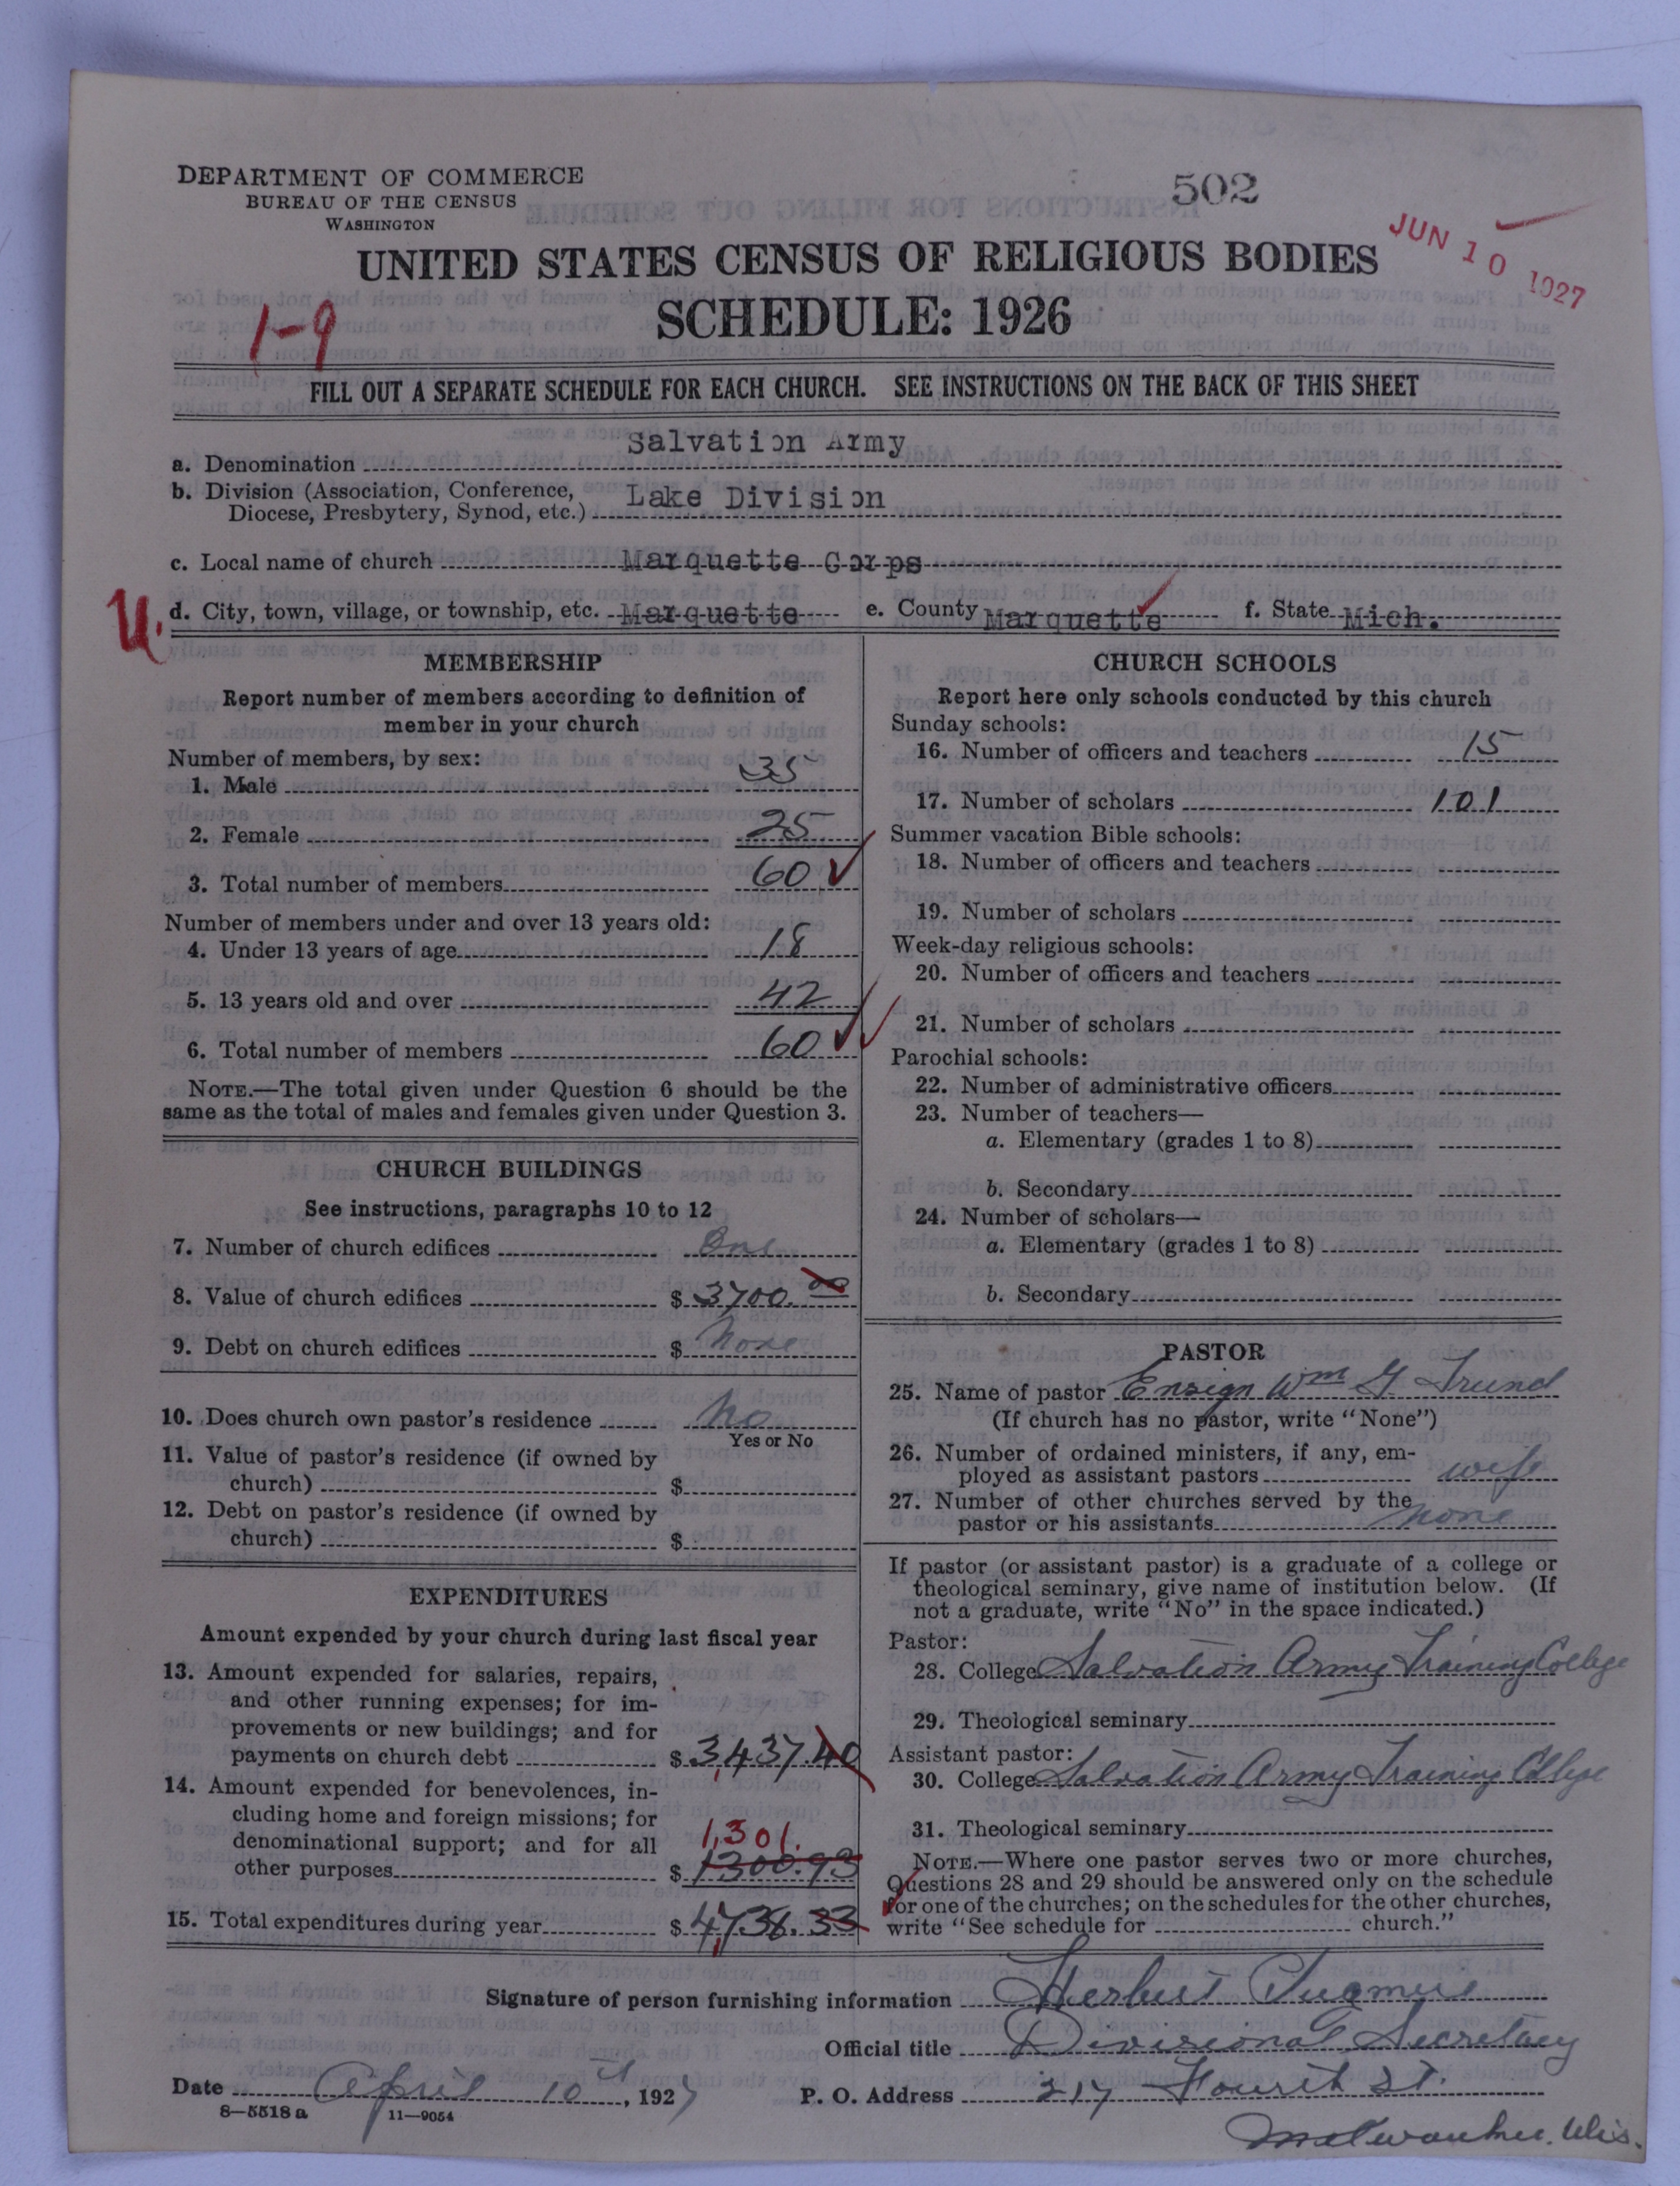 DEPARTMENT OF COMMERCE
BUREAU OF THE CENSUS
WASHINGTON
502
JUN 10 1927
UNITED STATES CENSUS OF RELIGIOUS BODIES
SCHEDULE: 1926
1-9
FILL OUT A SEPARATE SCHEDULE FOR EACH CHURCH. SEE INSTRUCTIONS ON THE BACK OF THIS SHEET
a. Denomination Salvation Army
b. Division (Association, Conference, Diocese, Presbytery, Synod, etc.) Lake Division
c. Local name of church Marquette Corps
U.
d. City, town, village, or township, etc. Marquette e. County Marquette f. State Mich.
MEMBERSHIP
Report number of members according to definition of
member in your church
Number of members, by sex:
1. Male 35
2. Female 25
3. Total number of members 60
Number of members under and over 13 years old:
4. Under 13 years of age 18
5. 13 years old and over 42
6. Total number of members 60
NOTE.—The total given under Question 6 should be the
same as the total of males and females given under Question 3.
CHURCH BUILDINGS
See instructions, paragraphs 10 to 12
7. Number of church edifices One
8. Value of church edifices $ 3700.00
9. Debt on church edifices $ None
10. Does church own pastor's residence No
Yes or No
11. Value of pastor's residence (if owned by
church) $
12. Debt on pastor's residence (if owned by
church) $
EXPENDITURES
Amount expended by your church during last fiscal year
13. Amount expended for salaries, repairs,
and other running expenses; for im-
provements or new buildings; and for
payments on church debt $ 3,437.40
14. Amount expended for benevolences, in-
cluding home and foreign missions; for
denominational support; and for all
1,301.
other purposes $ 1300.93
15. Total expenditures during year $ 4,738.33
CHURCH SCHOOLS
Report here only schools conducted by this church
Sunday schools:
16. Number of officers and teachers 15
17. Number of scholars 101
Summer vacation Bible schools:
18. Number of officers and teachers
19. Number of scholars
Week-day religious schools:
20. Number of officers and teachers
21. Number of scholars
Parochial schools:
22. Number of administrative officers
23. Number of teachers—
a. Elementary (grades 1 to 8)
b. Secondary
24. Number of scholars—
a. Elementary (grades 1 to 8)
b. Secondary
PASTOR
25. Name of pastor Ensign Wm G.
(If church has no pastor, write "None")
26. Number of ordained ministers, if any, em-
ployed as assistant pastors wife
27. Number of other churches served by the
pastor or his assistants none
If pastor (or assistant pastor) is a graduate of a college or
theological seminary, give name of institution below. (If
not a graduate, write "No" in the space indicated.)
Pastor:
28. College Salvation Army Training College
29. Theological seminary
Assistant pastor:
30. College Salvation Army Training College
31. Theological seminary
NOTE.—Where one pastor serves two or more churches,
Questions 28 and 29 should be answered only on the schedule
for one of the churches; on the schedules for the other churches,
write "See schedule for church."
Signature of person furnishing information Herbert
Official title Divisional Secretary
Date April 10th, 1927 P. O. Address 217 Fourth St.
Milwaukee. Wis.
8—5518a 11—9054